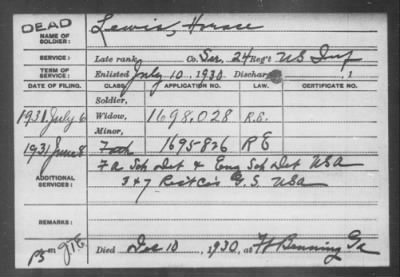 DEAD
NAME OF SOLDIER: Lewis, Horace
SERVICE: Late rank, Co. Ser. 24 Reg't US Inf
TERM OF SERVICE: Enlisted July 10, 1930. Discharged , 1
DATE OF FILING. CLASS. APPLICATION NO. LAW. CERTIFICATE NO.
Soldier,
1931, July 6 Widow, 1698,028 R.E.
Minor,
1931 June 8 Fath 1695826 R E
ADDITIONAL SERVICES: F A Sch Det & Eng Sch Det USA
3 & 7 Rct Co's G.S. USA
REMARKS:
Died Dec 10, 1930, at Ft Benning Ga